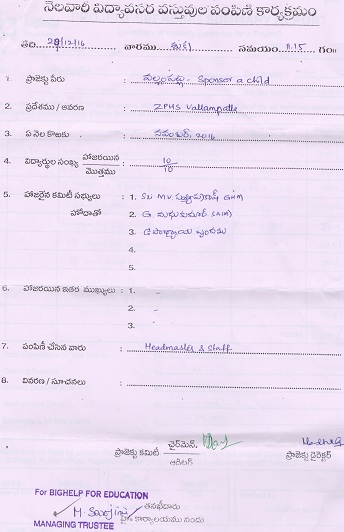 నెలవారీ విద్యావసర వస్తువుల పంపిణీ కార్యక్రమం
తేది 28/12/16 వారము సమయం 11.15 గం॥
1. ప్రాజెక్టు పేరు : Sponsor a child
2. ప్రదేశము / ఆవరణ : ZPHS Vallampatla
3. ఏ నెల కొఱకు : నవంబర్, 2016
4. విద్యార్థుల సంఖ్య హాజరయిన / మొత్తము : 10/10
5. హాజరైన కమిటీ సభ్యులు : 1. Sri M.V. GHM
హోదాతో 2. G. మధుకుమార్ SA(M)
3. ఉపాధ్యాయ బృందము
4.
5.
6. హాజరయిన ఇతర ముఖ్యులు : 1. -
2. -
3. -
7. పంపిణీ చేసిన వారు : Headmaster & Staff
8. వివరణ / సూచనలు :
ప్రాజెక్టు కమిటీ ఛైర్‌మెన్, / ఆడిటర్ ప్రాజెక్టు డైరెక్టర్
For BIGHELP FOR EDUCATION
M. Sarojini తనఖీదారు
MANAGING TRUSTEE పై కార్యాలయము నందు